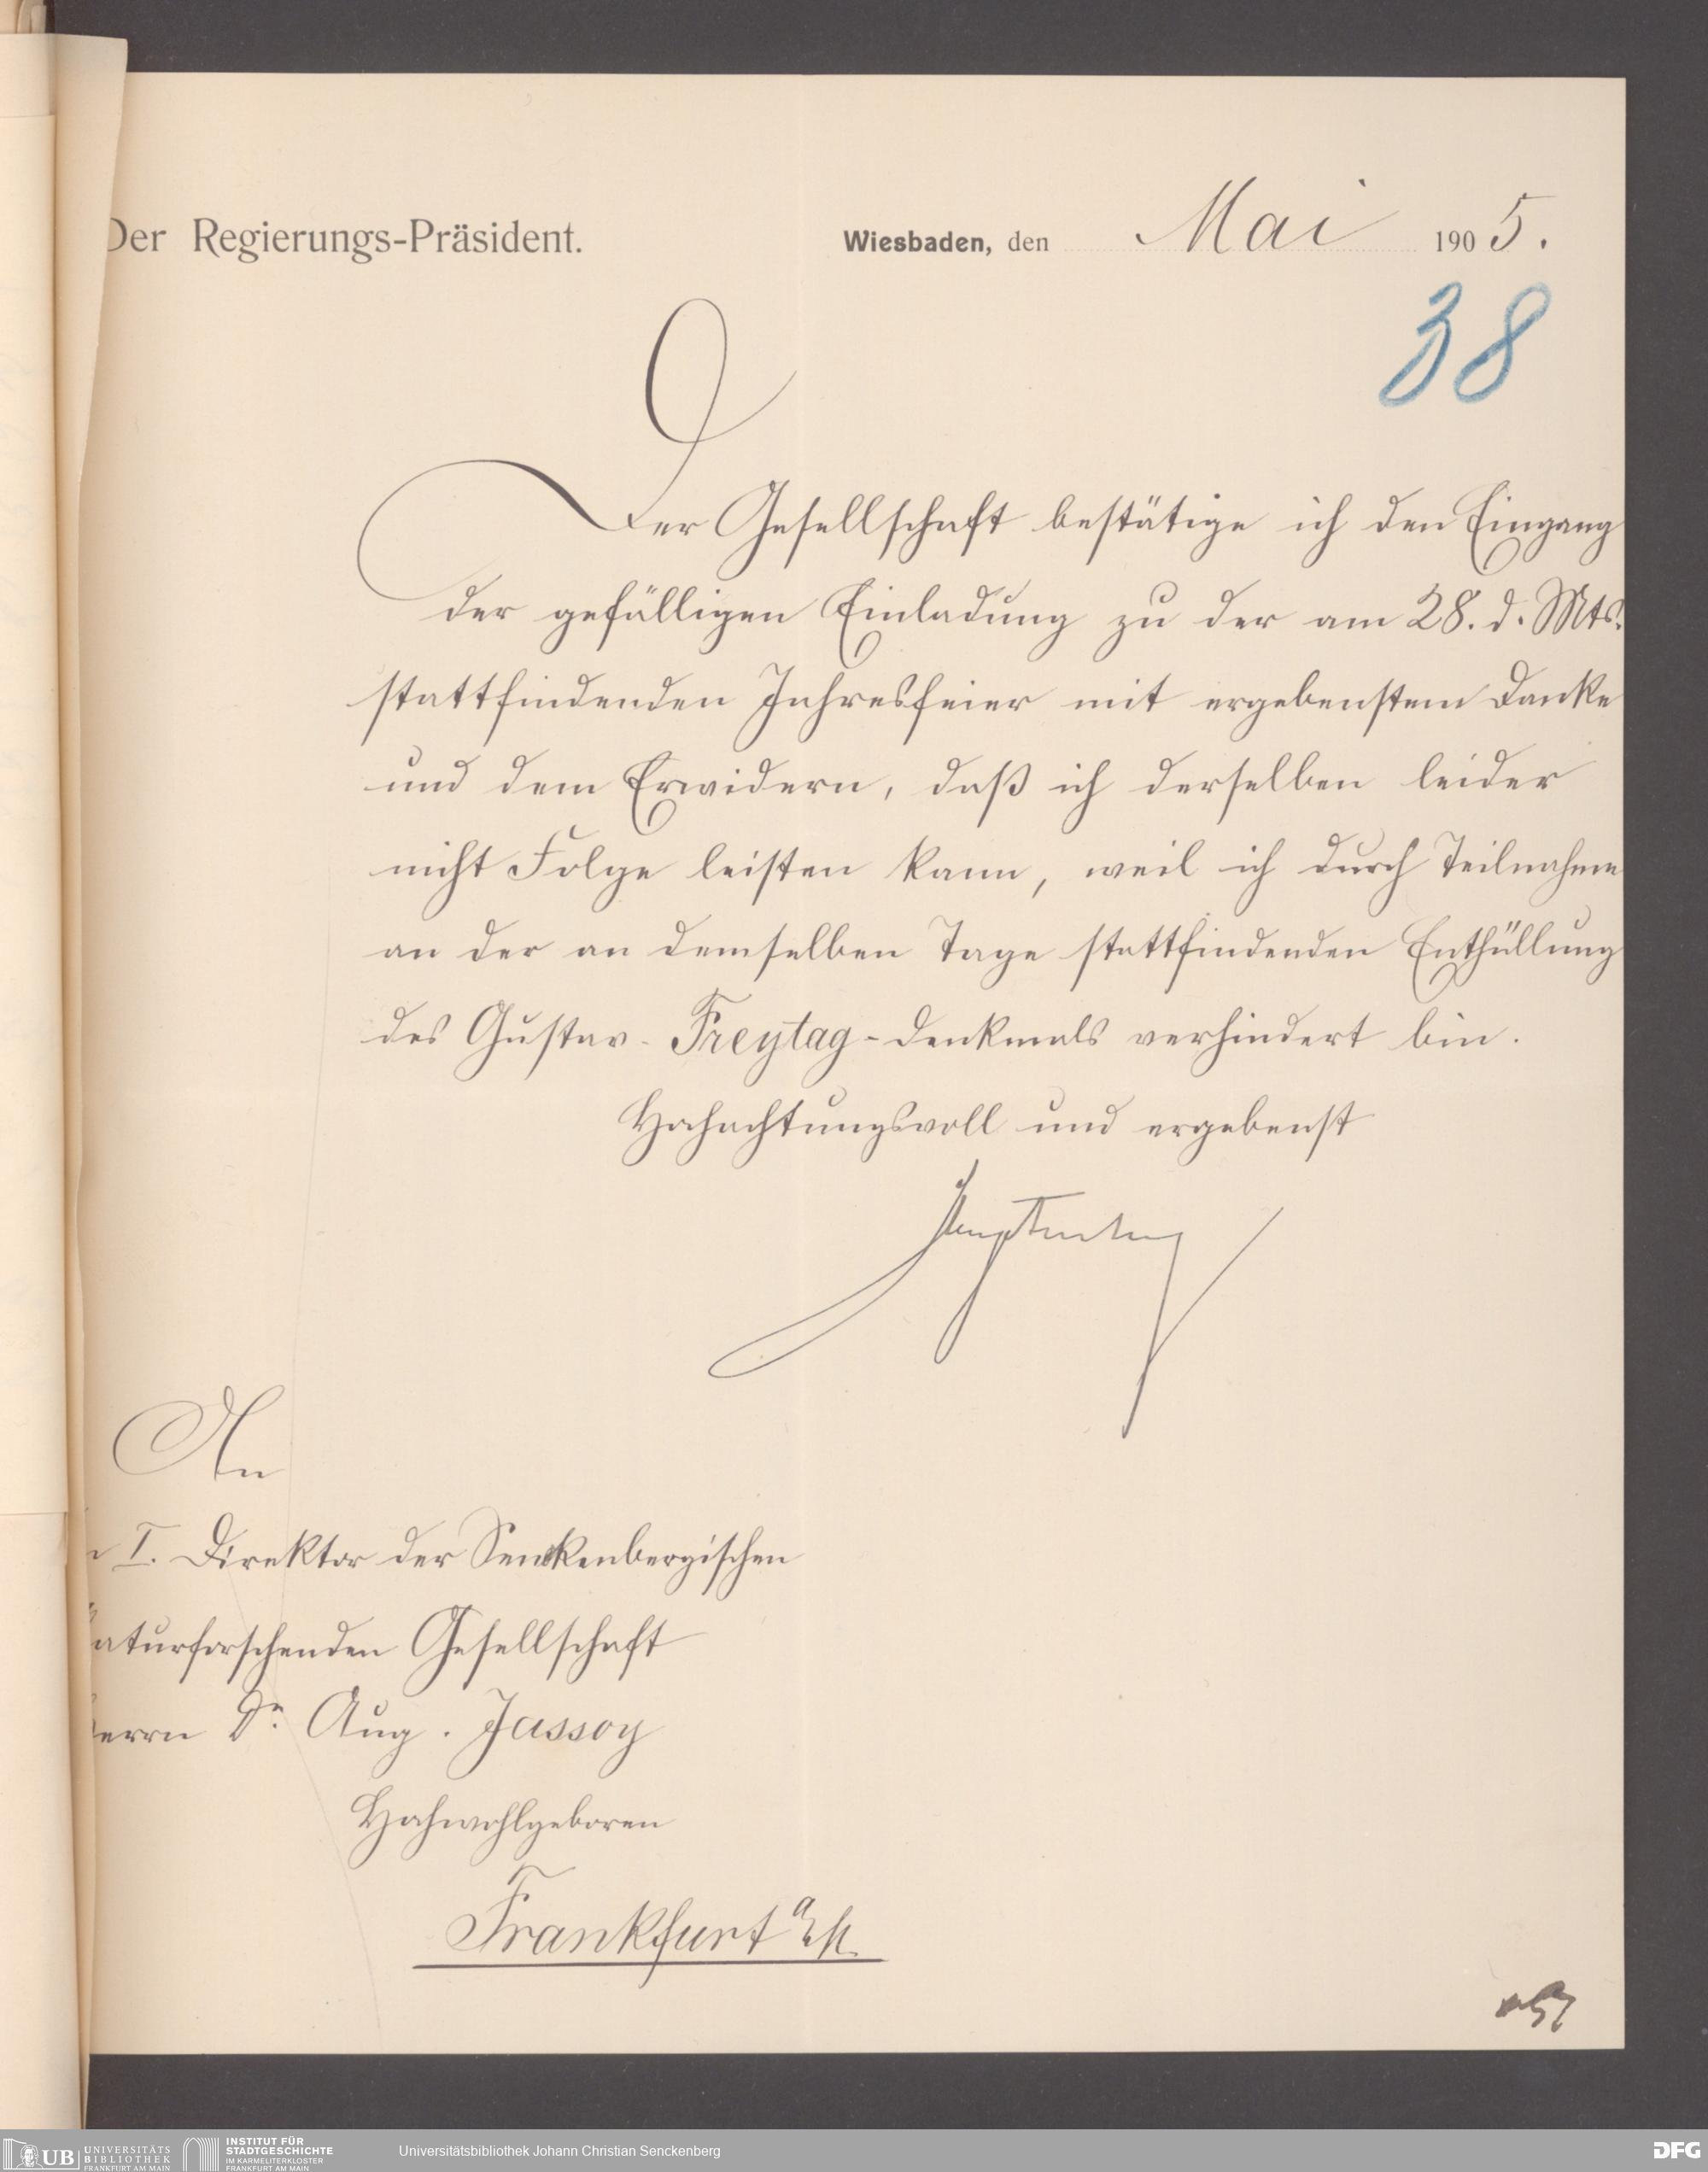 Der Regierungs-Präsident.
Wiesbaden, den Mai 1905.
38
Der Gesellschaft bestätige ich den Eingang
der gefälligen Einladung zu der am 28. d. Mts.
stattfindenden Jahresfeier mit ergebenstem Danke
und dem Erwidern, daß ich derselben leider
nicht Folge leisten kann, weil ich durch Teilnahme
an der an demselben Tage stattfindenden Enthüllung
des Gustav-Freytag-Denkmals verhindert bin.
Hochachtungsvoll und ergebenst
An
I. Direktor der Senckenbergischen
Naturforschenden Gesellschaft
Herrn Dr. Aug. Jassoy
Hochwohlgeboren
Frankfurt a/M.
UB UNIVERSITÄTS
BIBLIOTHEK
FRANKFURT AM MAIN
INSTITUT FÜR
STADTGESCHICHTE
IM KARMELITERKLOSTER
FRANKFURT AM MAIN
Universitätsbibliothek Johann Christian Senckenberg
DFG